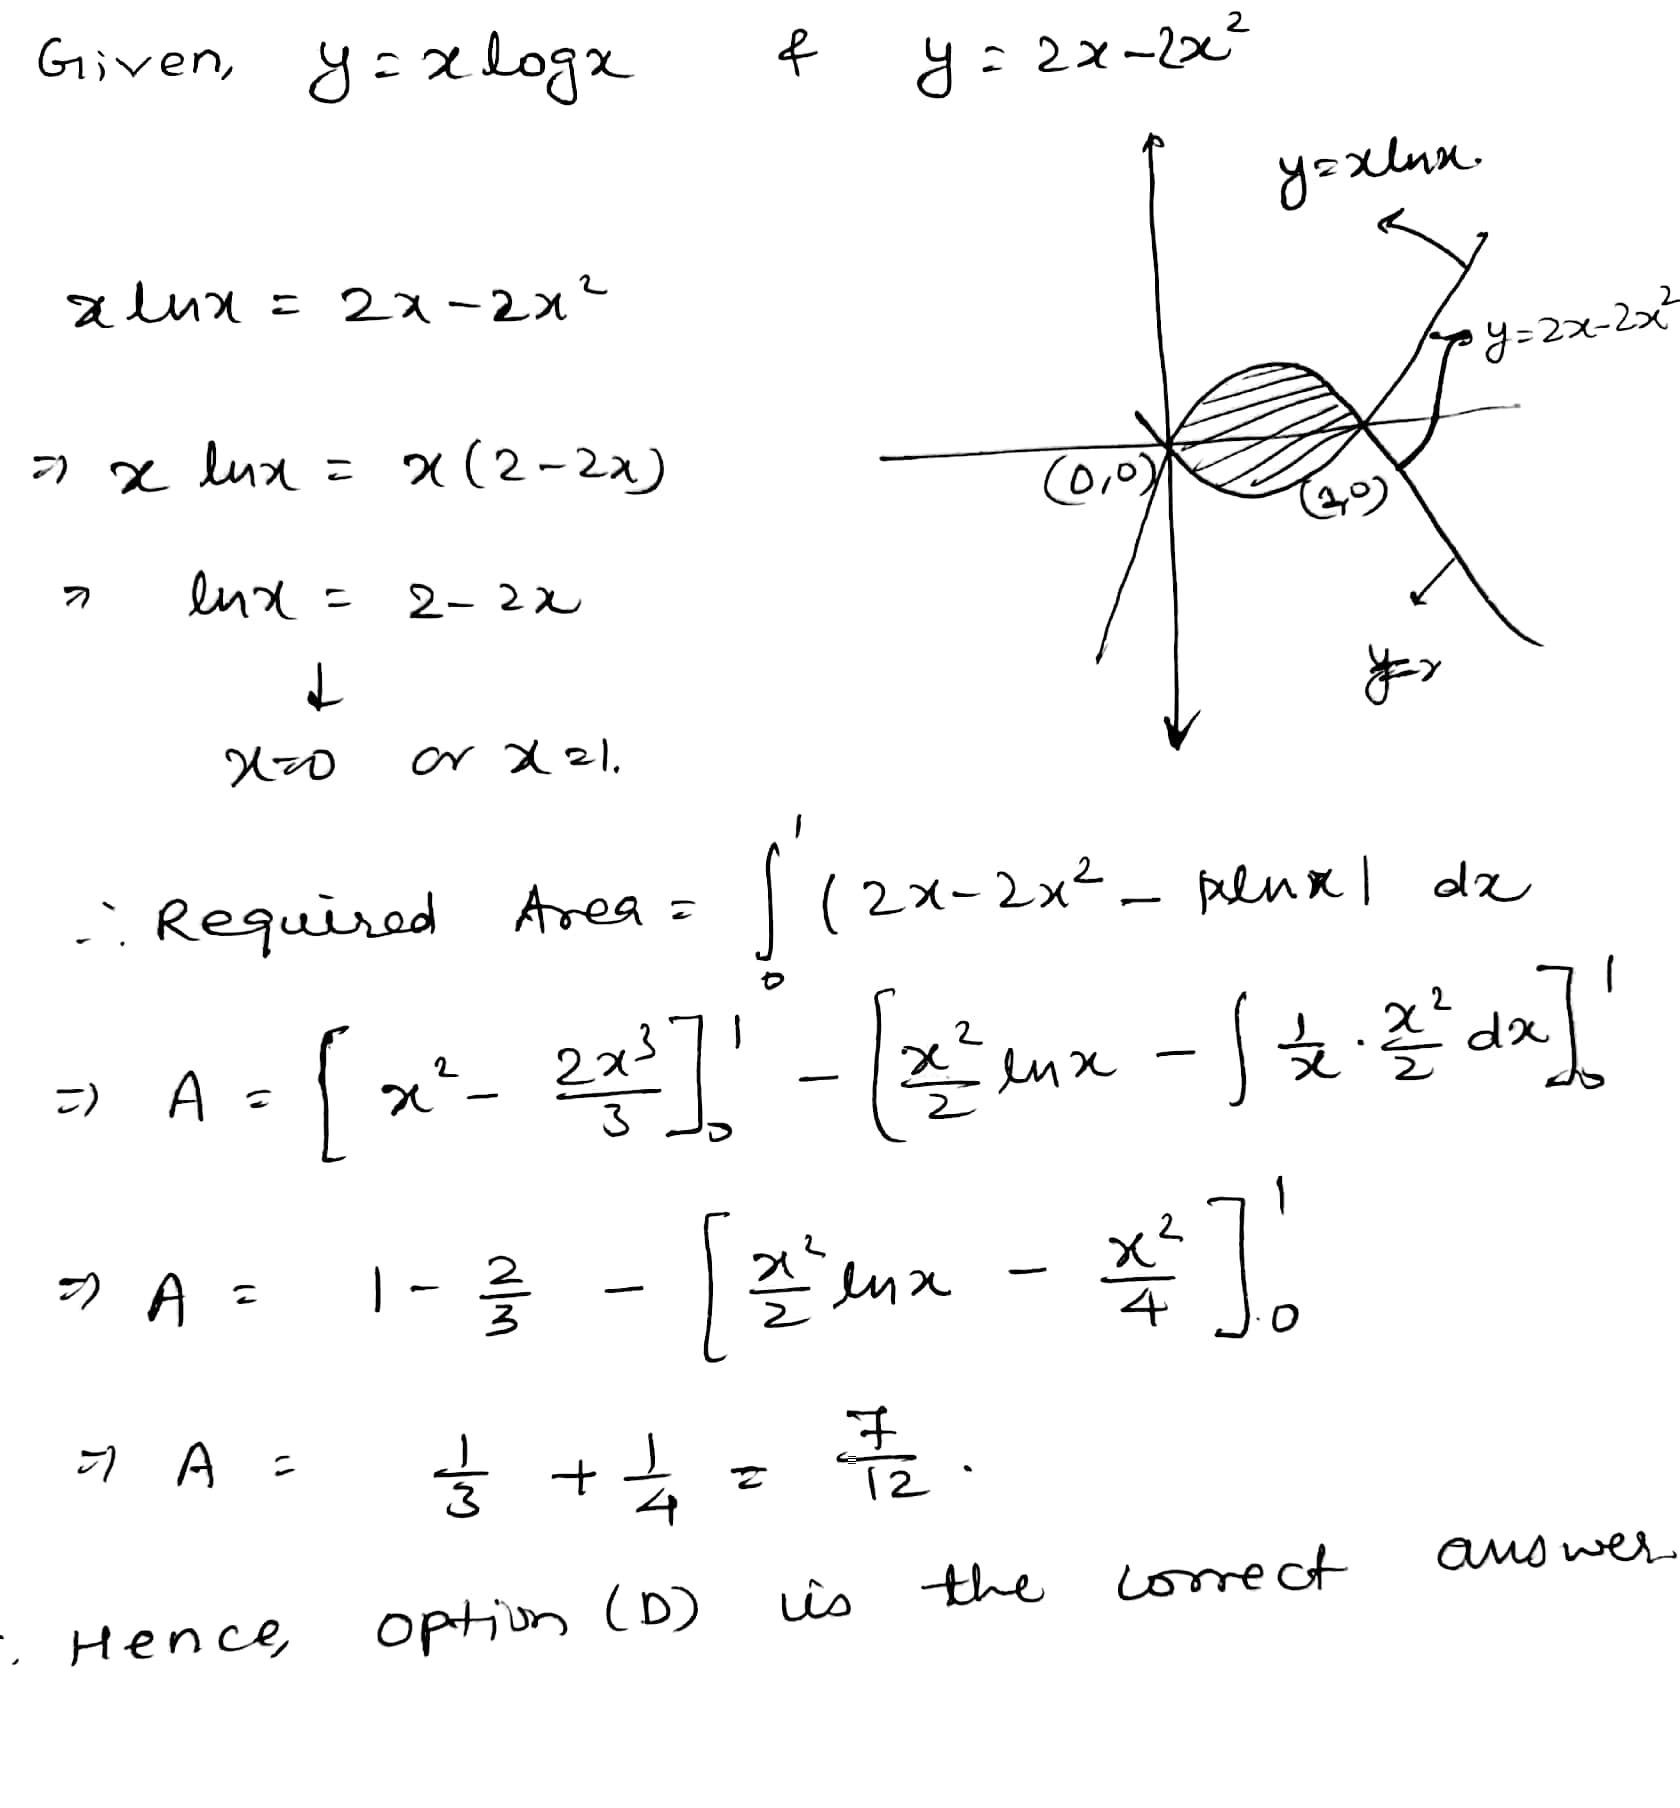 Given, y = x log x & y = 2x-2x²
y=xlnx.
x lnx = 2x-2x²
y=2x-2x²
⇒ x lnx = x(2-2x)
(0,0) (1,0)
⇒ lnx = 2-2x
↓
x=0 or x=1.
∴ Required Area = ∫₀¹ (2x-2x² - xlnx) dx
⇒ A = [x² - 2x³/3]₀¹ - [x²/2 lnx - ∫ 1/x · x²/2 dx]₀¹
⇒ A = 1 - 2/3 - [x²/2 lnx - x²/4]₀¹
⇒ A = 1/3 + 1/4 = 7/12.
Hence, option (D) is the correct answer